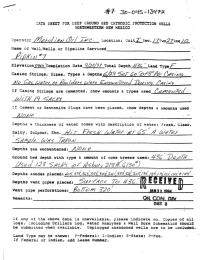 #7 30-045-13477
DATA SHEET FOR DEEP GROUND BED CATHODIC PROTECTION WELLS
NORTHWESTERN NEW MEXICO
Operator Meridian Oil Inc. Location: Unit I Sec. 13 Twp 27 Rng 10
Name of Well/Wells or Pipeline Serviced
Completion Date Total Depth 436' Land Type F
Casing Strings, Sizes, Types & Depths
No Gas, Water or Boulders Were Encountered During Casing.
If Casing Strings are cemented, show amounts & types used Cemented
With 19 Sacks
If Cement or Bentonite Plugs have been placed, show depths & amounts used
None
Depths & thickness of water zones with description of water: Fresh, Clear,
Salty, Sulphur, Etc. Hit Fresh Water At 65'. A Water
Sample Was Taken
Depths gas encountered: None
Ground bed depth with type & amount of coke breeze used: 436' Depth
Used
Depths anodes placed:
Depths vent pipes placed: Surface To 436'.
Vent pipe perforations: Bottom 320'.
Remarks:
RECEIVED
OIL CON. DIV
DIST. 3
If any of the above data is unavailable, please indicate so. Copies of all
logs, including Drillers Log, Water Analyses & Well Bore Schematics should
be submitted when available. Unplugged abandoned wells are to be included.
Land Type may be shown: F-Federal; I-Indian; S-State; P-Fee.
If Federal or Indian, add Lease Number.